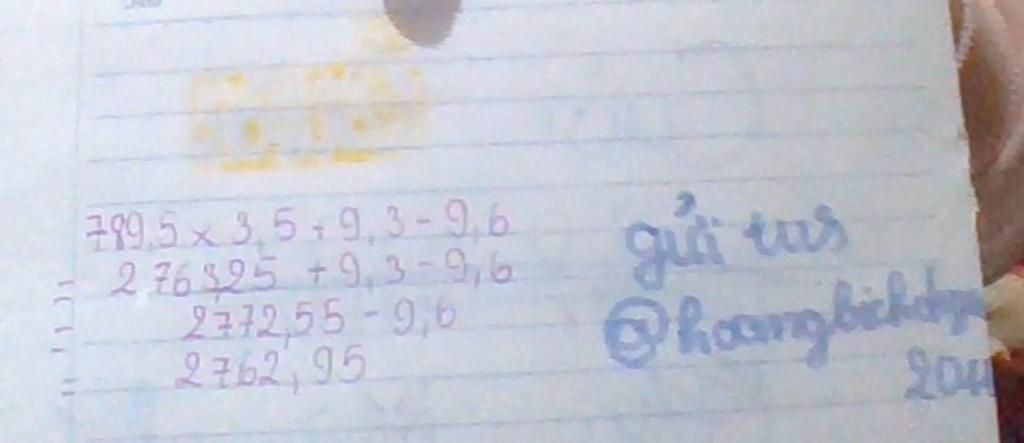 789,5 × 3,5 + 9,3 - 9,6
= 2763,25 + 9,3 - 9,6
= 2772,55 - 9,6
= 2762,95
gửi tus